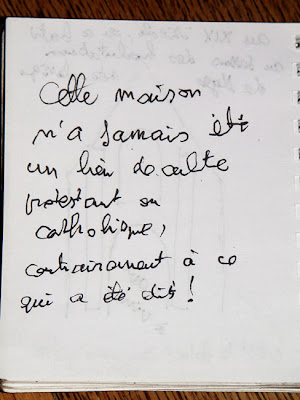 Cette maison
n'a jamais été
un lieu de culte
protestant ou
catholique,
contrairement à ce
qui a été dit !